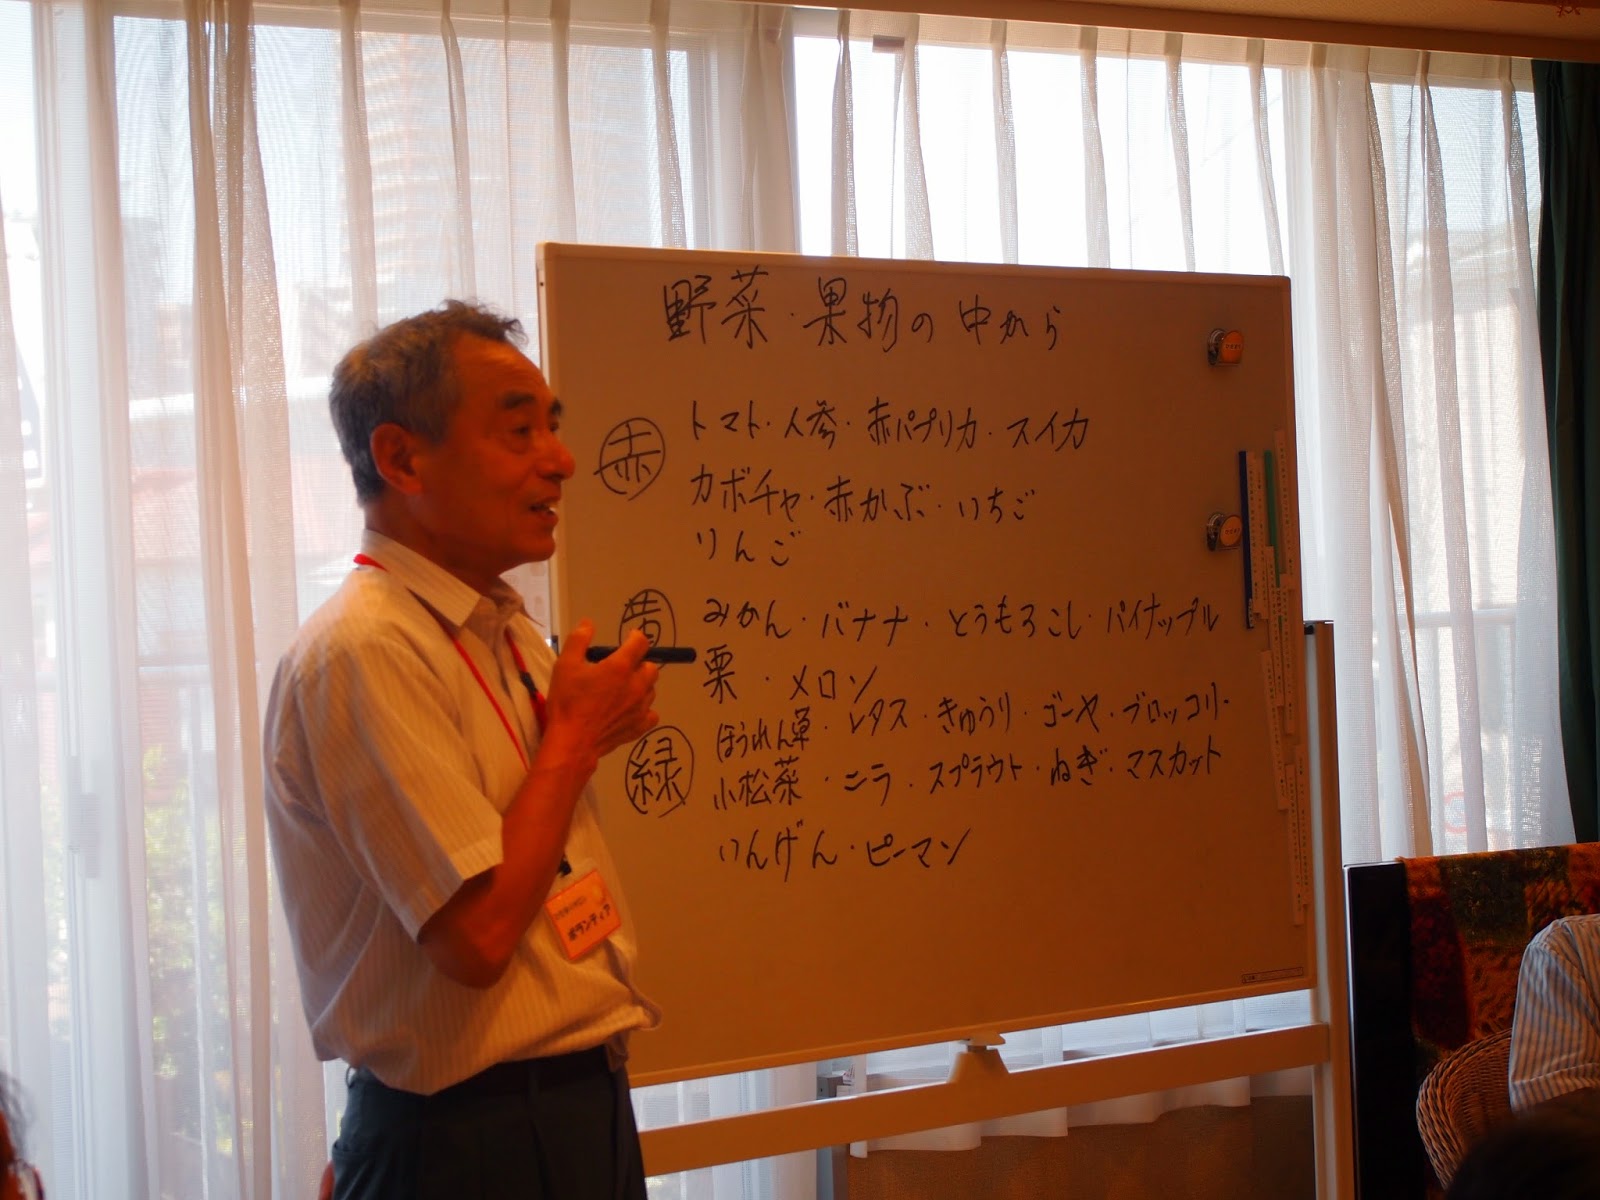 野菜・果物の中から
赤
トマト・人参・赤パプリカ・スイカ
カボチャ・赤かぶ・いちご
りんご
黄
みかん・バナナ・とうもろこし・パイナップル
栗・メロン
緑
ほうれん草・レタス・きゅうり・ゴーヤ・ブロッコリ・
小松菜・ニラ・スプラウト・ねぎ・マスカット
いんげん・ピーマン
ボランティア